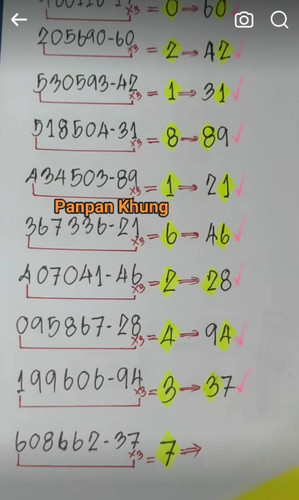 x3 = 0 → 60
205690-60 x3 = 2 → 42
530593-42 x3 = 1 → 31
518504-31 x3 = 8 → 89
434503-89 x3 = 1 → 21
Panpan Khung
367336-21 x3 = 6 → 46
407041-46 x3 = 2 → 28
095867-28 x3 = 4 → 94
199606-94 x3 = 3 → 37
608662-37 x3 = 7 →